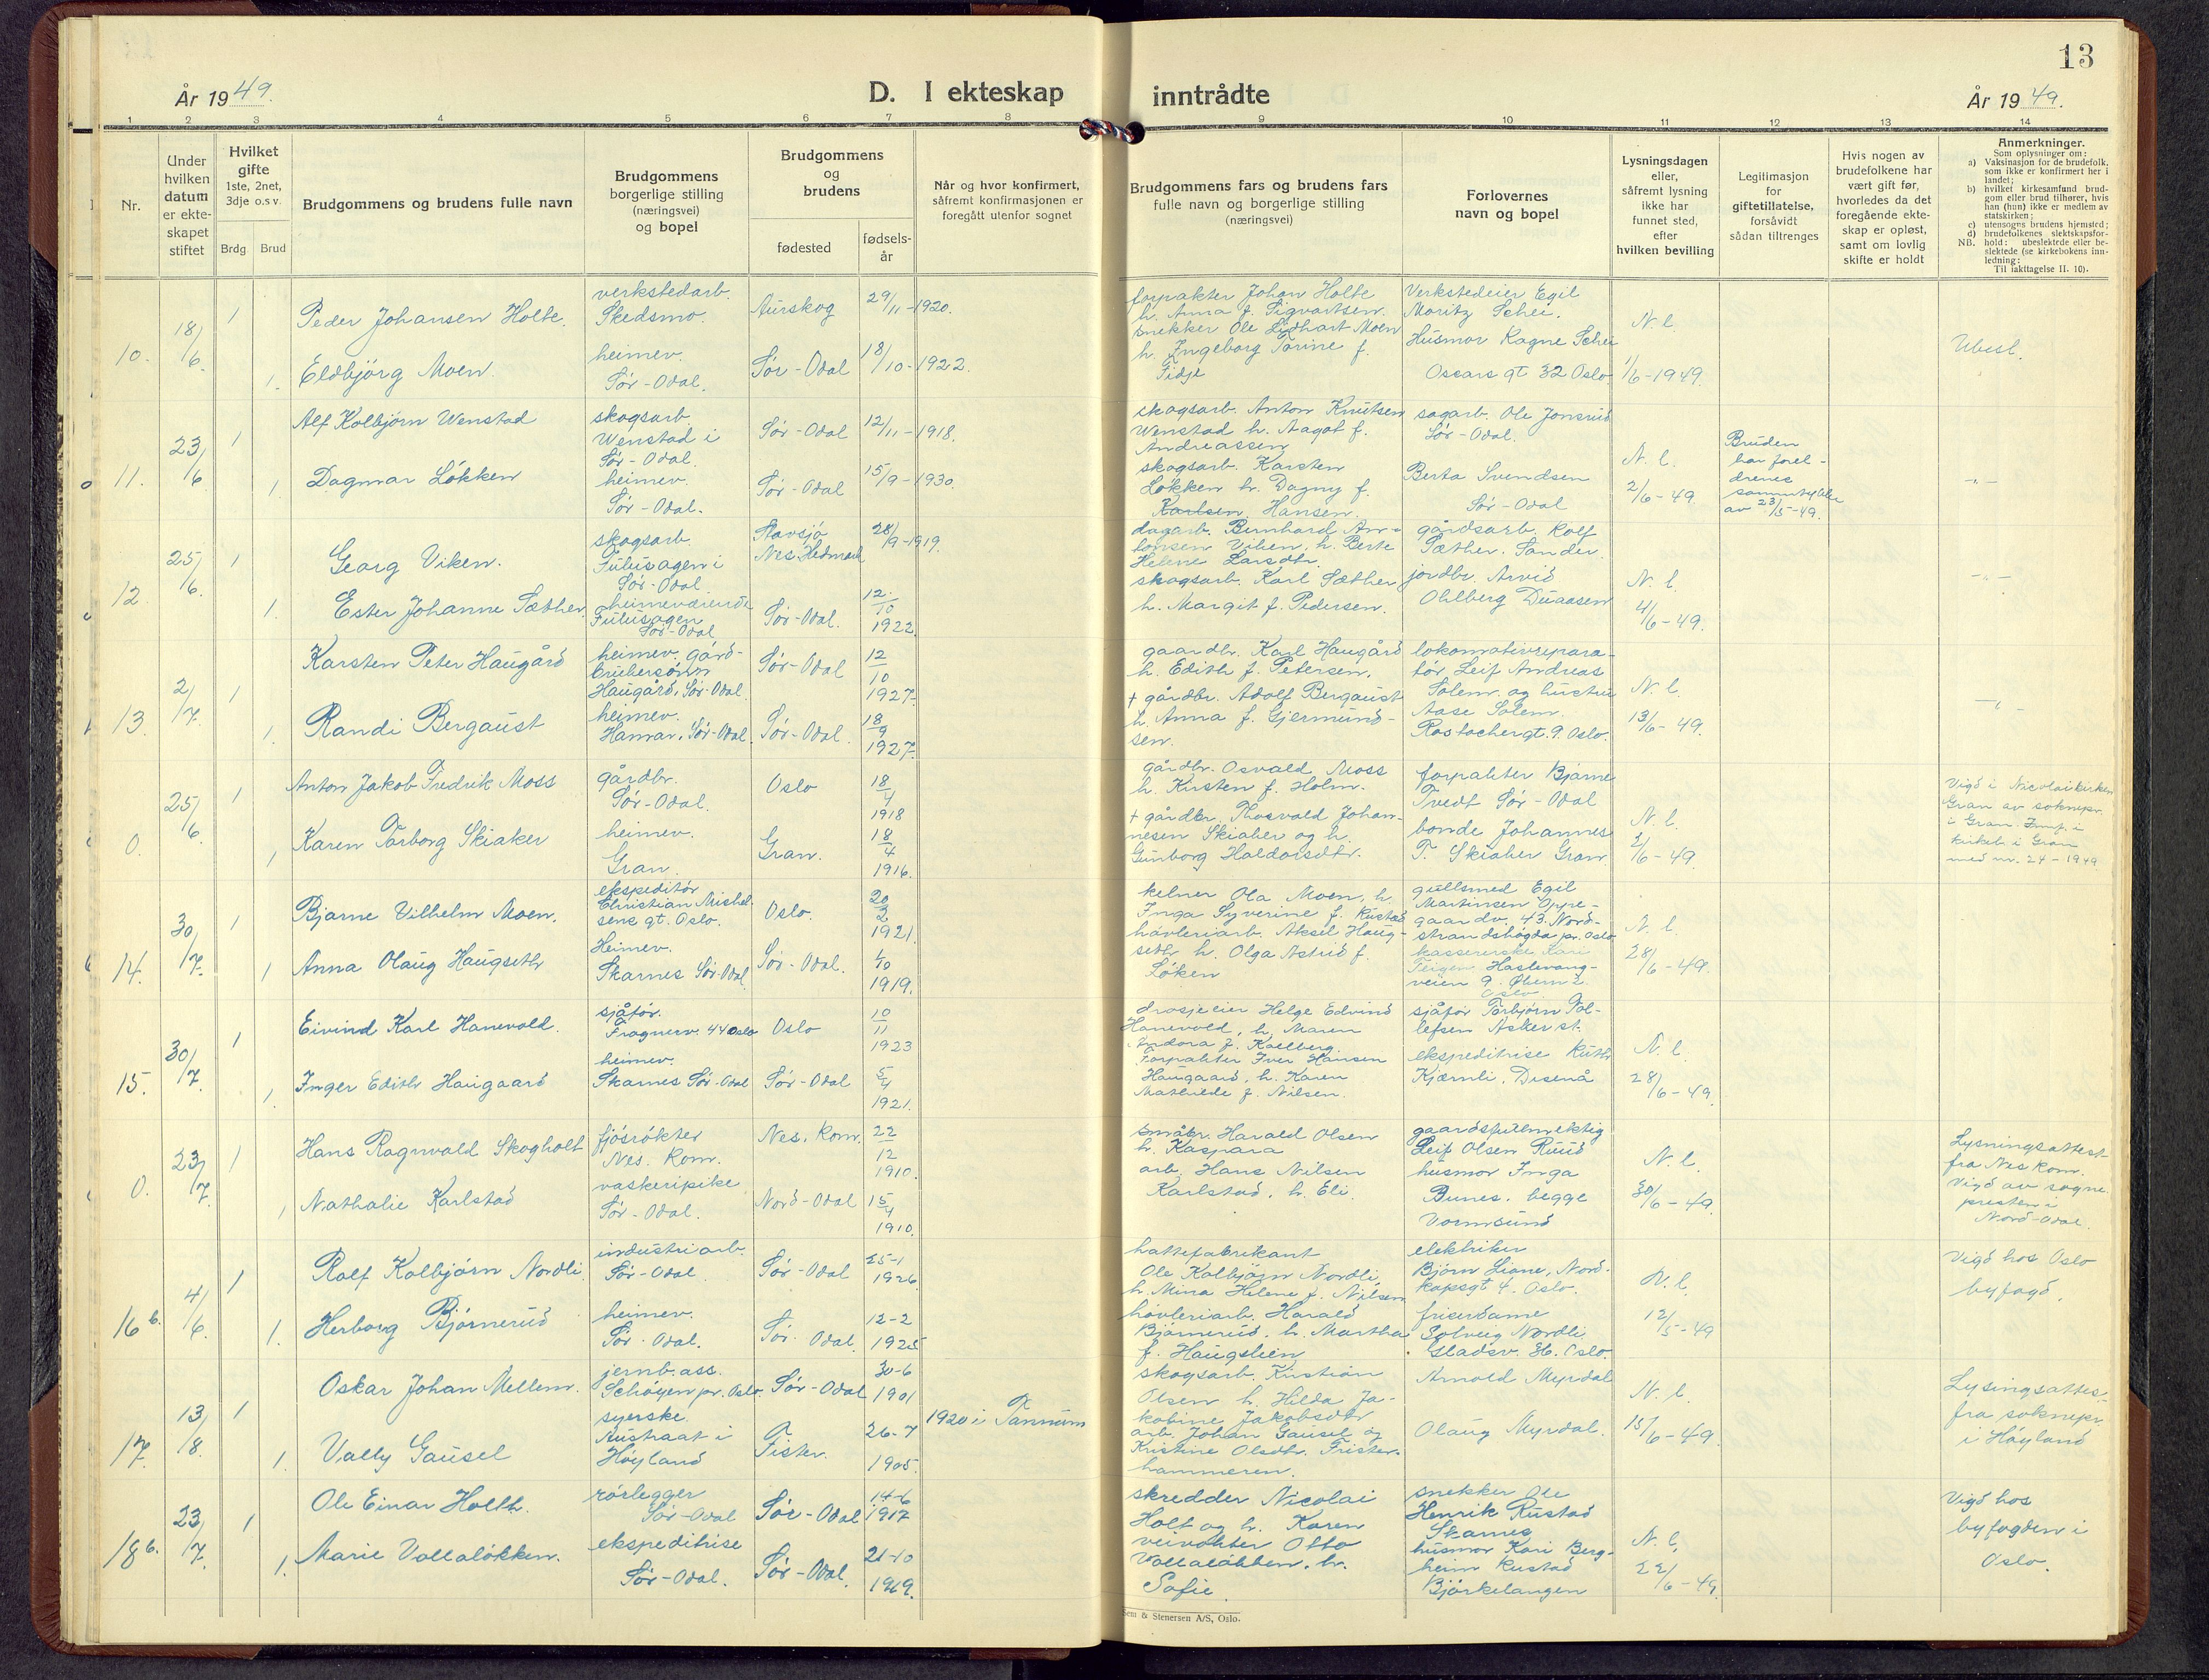 13
År 1949.
D. I ekteskap inntrådte
År 1949.
1 2 3 4 5 6 7 8 9 10 11 12 13 14
Nr.
Under hvilken datum er ekteskapet stiftet
Hvilket gifte 1ste, 2net, 3dje o.s.v.
Brdg Brud
Brudgommens og brudens fulle navn
Brudgommens borgerlige stilling (næringsvei) og bopel
Brudgommens og brudens
fødested
fødsels-år
Når og hvor konfirmert, såfremt konfirmasjonen er foregått utenfor sognet
Brudgommens fars og brudens fars fulle navn og borgerlige stilling (næringsvei)
Forlovernes navn og bopel
Lysningsdagen eller, såfremt lysning ikke har funnet sted, efter hvilken bevilling
Legitimasjon for giftetillatelse, forsåvidt sådan tiltrenges
Hvis nogen av brudefolkene har vært gift før, hvorledes da det foregående ekte-skap er opløst, samt om lovlig skifte er holdt
Anmerkninger.
Som oplysninger om:
a) Vaksinasjon for de brudefolk, som ikke er konfirmert her i landet;
b) hvilket kirkesamfund brudgom eller brud tilhører, hvis han (hun) ikke er medlem av statskirken;
c) utensogns brudens hjemsted;
d) brudefolkenes slektskapsfor-
NB. hold: ubeslektede eller beslektede (se kirkebokens innledning:
Til iakttagelse II. 10).
10. 18/6. 1
Peder Johansen Holte.
verkstedarb. Skedsmo.
Aurskog
29/11-1920.
forpakter Johan Holte
h. Anna f. Sigvartsen.
Verkstedeier Egil
Moritz Schei.
N. l.
1.
Eldbjörg Moen.
heimev. Sør-Odal.
Sør-Odal
18/10-1922.
snekker Ole Lidhart Moen
h. Ingeborg Torine f.
Tidje
Husmor Ragne Schei
Oscars gt 32 Oslo.
1/6-1949.
Ubesl.
11. 23/6 1
Alf Kolbjørn Wenstad
skogsarb. Wenstad i Sør-Odal.
Sør-Odal
12/11-1918.
skogsarb. Anton Knutsen
Wenstad h. Aagot f.
Andreassen
sagarb. Ole Jonsrud
Sør-Odal.
N. l.
Bruden
har forel-
drenes
samtykke
av 23/5-49.
1.
Dagmar Løkken
heimev. Sør-Odal.
Sør-Odal
15/9-1930.
skogsarb. Karsten
Løkken h. Dagny f.
Karlsen. Hansen.
Berta Svendsen
Sør-Odal
2/6-49
-"-
12. 25/6. 1
Georg Viken.
skogsarb. Fulusagen i Sør-Odal
Stavsjø Nes. Hedmark
28/9-1919.
dagarb. Bernhard An-
tonsen Viken. h. Berte
Helene Larsdtr.
gårdsarb. Rolf
Sæther. Sander.
N. l.
1.
Ester Johanne Sæther.
heimeværende Fulusagen Sør-Odal
Sør-Odal.
12/10 1922.
skogsarb. Karl Sæther
h. Margit f. Pedersen.
jordbr. Arvid
Ohlberg Duaasen
4/6-49.
-"-
13. 2/7. 1
Karsten Peter Haugård
heimev. gård-brukersønn Haugård, Sør-Odal.
Sør-Odal
12/10 1927.
gaardbr. Karl Haugård
h. Edith f. Petersen.
lokomotivrepara-
tør Leif Andreas
Solem. og hustru
N. l.
1.
Randi Bergaust
heimev. Hamar, Sør-Odal.
Sør-Odal.
18/9 1927.
+ gårdbr. Adolf Bergaust
h. Anna f. Gjermund-
sen.
Aase Solem
Rostochergt. 9. Oslo.
13/6-49.
-"-
0. 25/6. 1
Anton Jakob Fredrik Moss
gårdbr. Sør-Odal.
Oslo
18/4 1918
gårdbr. Osvald Moss
h. Kirsten f. Holm.
forpakter Bjarne
Tvedt Sør-Odal
N. l.
1
Karen Torborg Skiaker
heimev. Gran.
Gran.
18/4 1916.
+ gårdbr. Thorvald Johan-
nesen Skiaker og h.
Gunborg Haldorsdtr.
bonde Johannes
T. Skiaker Gran.
2/6-49
Vigd i Nicolaikirken
Gran av soknepr.
i Gran. Innf. i
kirkeb i Gran
med nr. 24-1949
14. 30/7. 1
Bjarne Vilhelm Moen.
ekspeditør Christian Michel-sens gt. Oslo.
Oslo.
20/2 1921.
kelner Ola Moen, h.
Inga Syverine f. Rustad
gullsmed Egil
Martinsen Oppe-
gaardv. 43. Nord-
strandshøgda pr. Oslo
N. l.
1
Anna Olaug Haugseth
Heimev. Skarnes Sør-Odal
Sør-Odal.
1919.
høvleriarb. Aksel Haug-
seth h. Olga Astrid f.
Søken
kassererske Kari
Teigen Haslevang-
veien 9. Økern
Oslo
28/6-49.
15. 30/7. 1
Eivind Karl Hanevold.
sjåfør. Frognerv. 44 Oslo
Oslo
10/11 1923
drosjeeier Helge Edvind
Hanevold, h. Maren
Andora f. Kollberg.
sjåfør Torbjørn Tol-
lefsen Asker st.
N. l.
1.
Inger Edith Haugaard
heimev. Skarnes Sør-Odal
Sør-Odal
5/4 1921.
Forpakter Iver Hansen
Haugaard, h. Karen
Mathilde f. Nilsen.
ekspeditrise Ruth
Kjærnli. Disenå
28/6-49.
0. 23/7. 1
Hans Ragnvald Skogholt
fjøsrøkter Nes. Rom.
Nes. Rom.
22/12 1910.
småbr. Harald Olsen
h. Kaspara
gaardsfullmektig
Leif Olsen Ruud
N. l.
1
Nathalie Karlstad
vaskeripike Sør-Odal.
Nord-Odal
15/4 1910.
arb. Hans Nilsen
Karlstad. h. Eli.
husmor Inga
Bunes. begge
Vormsund
30/6-49.
Lysningsattest
fra Nes Rom.
Vigd av sogne
presten i
Nord-Odal.
16 b. 4/6. 1
Rolf Kolbjørn Nordli
industriarb. Sør-Odal
Sør-Odal
25-1 1926
hattefabrikant
Ole Kolbjørn Nordli,
h. Mina Helene f. Nilsen
elektriker
Bjørn Liane, Nord-
kapsgt 4. Oslo.
N. l.
1.
Herborg Bjørnerud
heimev. Sør-Odal.
Sør-Odal.
12-2 1925
høvleriarb. Harald
Bjørnerud. h. Martha
f. Haugslien
friserdame
Solveig Nordli
Gladsv. 36. Oslo.
12/5-49
Vigd hos Oslo
byfogd.
17. 13/8. 1
Oskar Johan Mellem.
jernb.ass. Schøyen pr. Oslo.
Sør-Odal
30-6 1901
skogsarb. Kristian
Olsen h. Hilda Ja-
kobine Jakobsdtr
Arnold Myrdal
N. l.
1.
Vally Gausel
syerske. Austraat i Høyland
Fister.
26-7 1905.
1920 i Tannum
arb. Johan Gausel og
Kristine Olsdtr. Frister-
hammeren.
Olaug Myrdal.
15/6-49.
Lysingsattes
fra soknepr.
i Høyland
18 b. 23/7. 1
Ole Einar Holth.
rørlegger Sør-Odal
Sør-Odal
14-6 1917
skredder Nicolai
Holt og h. Karen
snekker Ole
Henrik Rustad
Skarnes
N. l.
1.
Marie Vollaløkken.
ekspeditrise Sør-Odal.
Sør-Odal.
21-10 1919.
veivokter Otto
Vollaløkken. h.
Sofie.
husmor Kari Berg-
heim Rustad
Bjørkelangen
22/6-49.
Vigd hos
byfogden i
Oslo.
Sem & Stenersen A/S, Oslo.